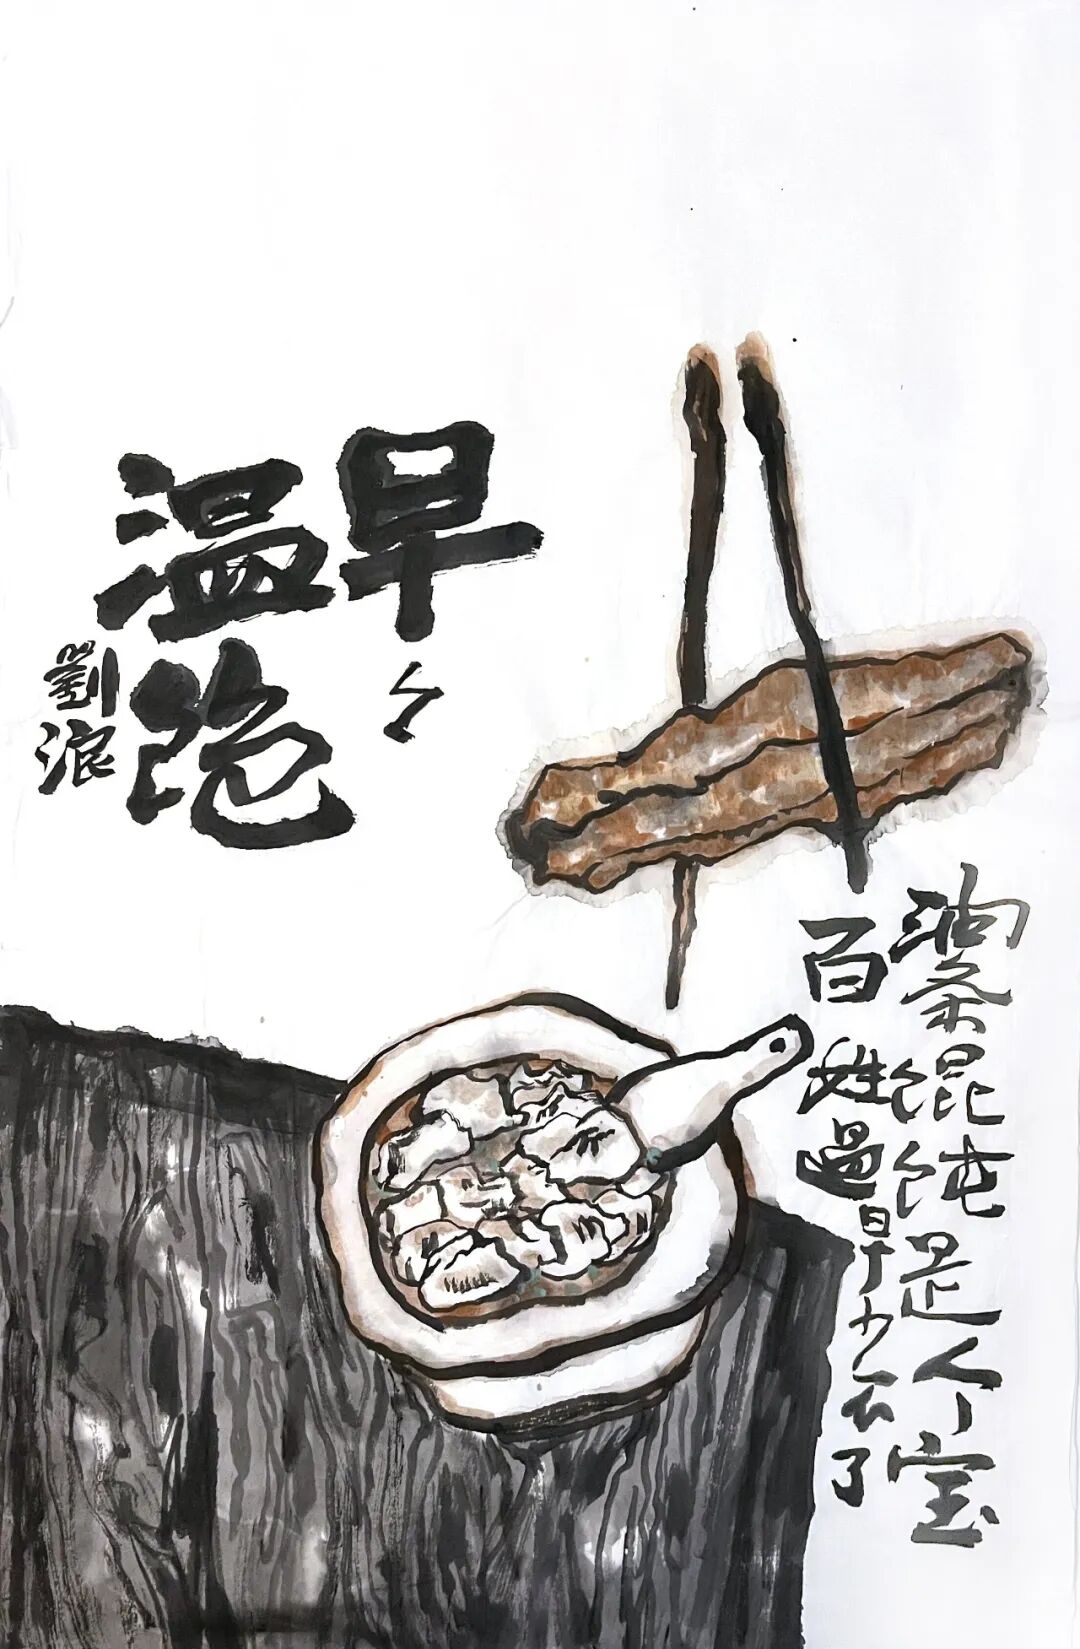 早々
温饱
劉浪
油条馄饨是个宝
百姓過早少不了